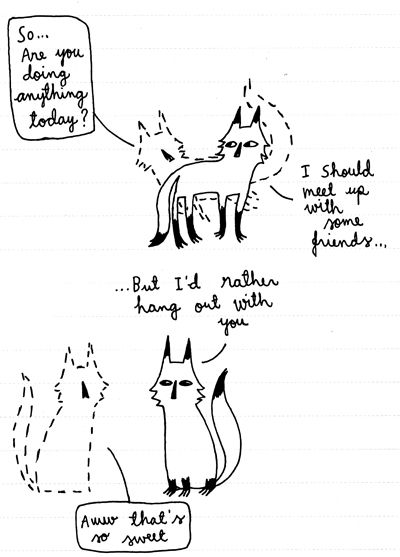 So...
Are you
doing
anything
today?
I should
meet up
with
some
friends...
...But I'd rather
hang out with
you
Aww that's
so sweet